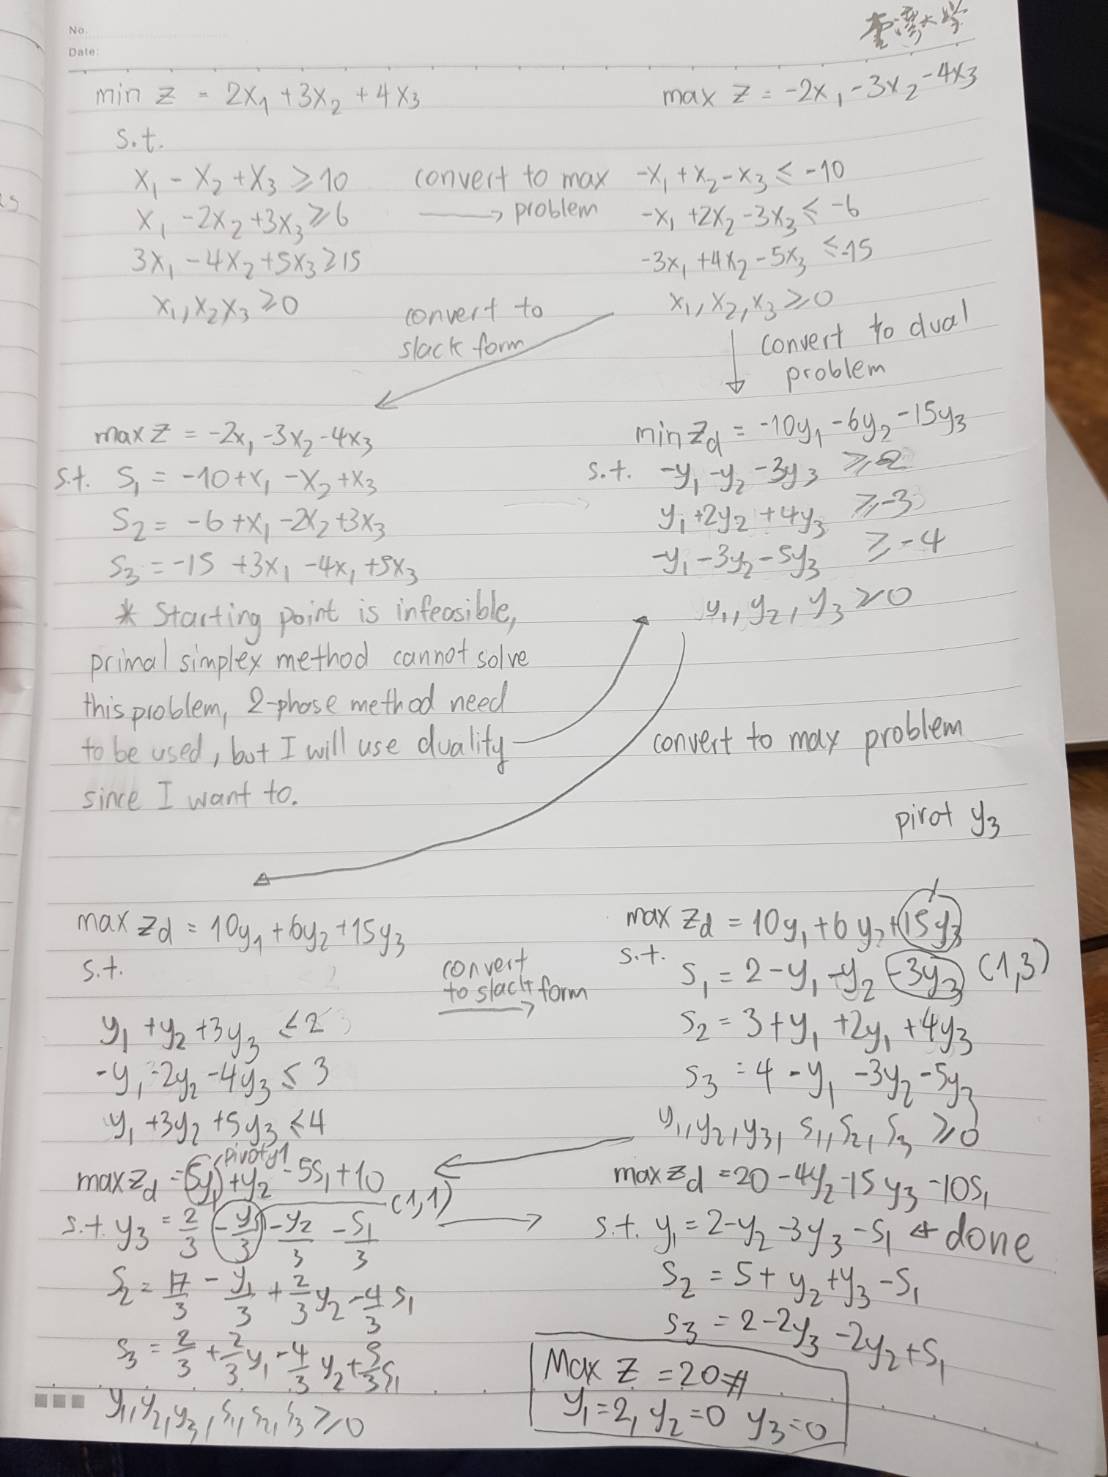 No.
Date:
臺灣大學
min z = 2x₁ + 3x₂ + 4x₃
s.t.
x₁ - x₂ + x₃ ≥ 10
x₁ - 2x₂ + 3x₃ ≥ 6
3x₁ - 4x₂ + 5x₃ ≥ 15
x₁, x₂ x₃ ≥ 0
convert to max
→ problem
max z = -2x₁ - 3x₂ - 4x₃
-x₁ + x₂ - x₃ ≤ -10
-x₁ + 2x₂ - 3x₃ ≤ -6
-3x₁ + 4x₂ - 5x₃ ≤ -15
x₁, x₂, x₃ ≥ 0
convert to
slack form
convert to dual
problem
max z = -2x₁ - 3x₂ - 4x₃
s.t. S₁ = -10 + x₁ - x₂ + x₃
S₂ = -6 + x₁ - 2x₂ + 3x₃
S₃ = -15 + 3x₁ - 4x₁ + 5x₃
* Starting point is infeasible,
primal simplex method cannot solve
this problem, 2-phase method need
to be used, but I will use duality
since I want to.
min z_d = -10y₁ - 6y₂ - 15y₃
s.t. -y₁ - y₂ - 3y₃ ≥ -2
y₁ + 2y₂ + 4y₃ ≥ -3
-y₁ - 3y₂ - 5y₃ ≥ -4
y₁, y₂, y₃ ≥ 0
convert to max problem
pivot y₃
max z_d = 10y₁ + 6y₂ + 15y₃
s.t.
y₁ + y₂ + 3y₃ ≤ 2
-y₁ - 2y₂ - 4y₃ ≤ 3
y₁ + 3y₂ + 5y₃ ≤ 4
convert
to slack form
→
max z_d = 10y₁ + 6y₂ + 15y₃
s.t. S₁ = 2 - y₁ - y₂ - 3y₃ (1,3)
S₂ = 3 + y₁ + 2y₁ + 4y₃
S₃ = 4 - y₁ - 3y₂ - 5y₃
y₁, y₂, y₃, s₁, s₂, s₃ ≥ 0
pivot y1
max z_d = 5y₁ + y₂ - 5s₁ + 10
s.t y₃ = 2/3 - y₁/3 - y₂/3 - s₁/3 (1,1)
S₂ = 17/3 - y₁/3 + 2/3 y₂ - 4/3 s₁
S₃ = 2/3 + 2/3 y₁ - 4/3 y₂ + 5/3 s₁
y₁, y₂, y₃, s₁, s₂, s₃ ≥ 0
max z_d = 20 - 4y₂ - 15y₃ - 10s₁
s.t. y₁ = 2 - y₂ - 3y₃ - s₁ ← done
S₂ = 5 + y₂ + y₃ - s₁
S₃ = 2 - 2y₃ - 2y₂ + s₁
Max z = 20 #
y₁ = 2, y₂ = 0 y₃ = 0